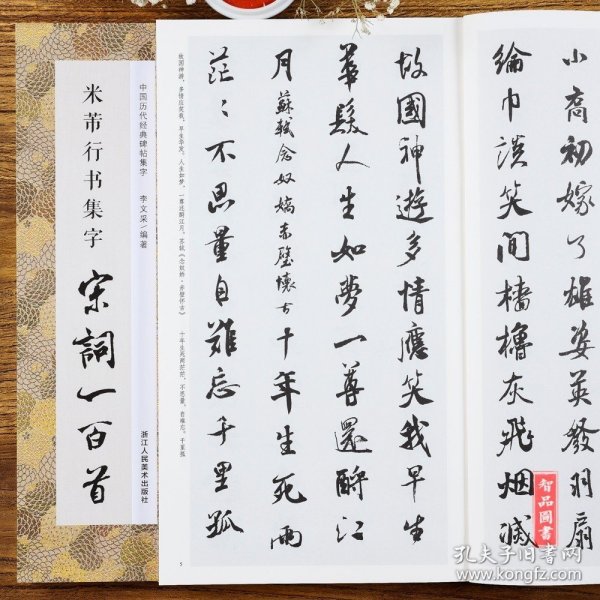 米芾行书集字
宋詞一百首
中国历代经典碑帖集字
李文采/编著
浙江人民美术出版社
小喬初嫁了雄姿英發羽扇
綸巾談笑間檣櫓灰飛烟滅
故國神遊多情應笑我早生
華髮人生如夢一尊還酹江
月蘇軾念奴嬌赤壁懷古十年生死兩
茫〻不思量自難忘千里孤
故国神游，多情应笑我，早生华发。人生如梦，一尊还酹江月。苏轼《念奴娇·赤壁怀古》
十年生死两茫茫，不思量，自难忘。千里孤
5
智品圖書
孔夫子旧书网
www.kongfz.com